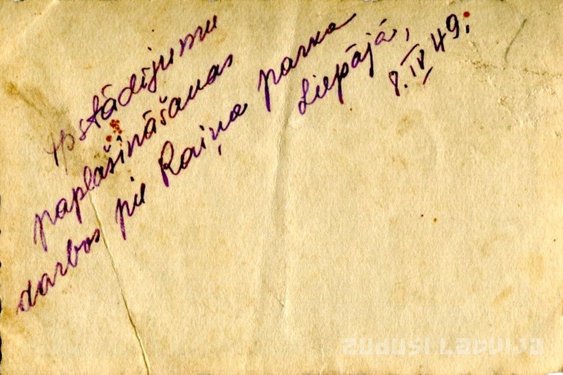 Apstādījumu
paplašināšanas
darbos pie Raiņa parka
Liepājā,
8. IV 49.
zudusi Latvija